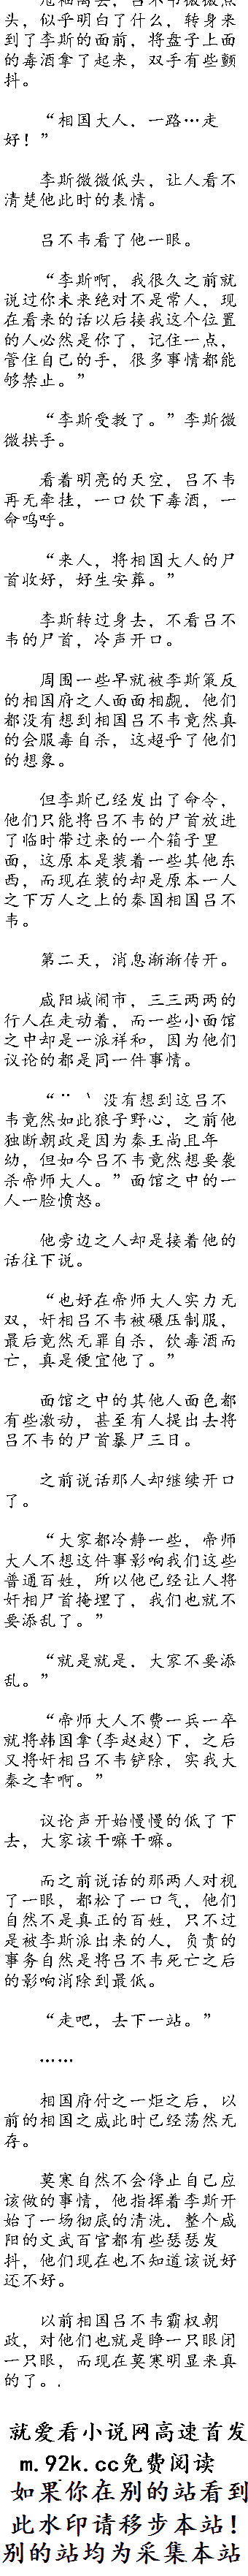 头，似乎明白了什么，转身来
到了李斯的面前，将盘子上面
的毒酒拿了起来，双手有些颤
抖。
“相国大人，一路…走
好！”
李斯微微低头，让人看不
清楚他此时的表情。
吕不韦看了他一眼。
“李斯啊，我很久之前就
说过你未来绝对不是常人，现
在看来的话以后接我这个位置
的人必然是你了，记住一点，
管住自己的手，很多事情都能
够禁止。”
“李斯受教了。”李斯微
微拱手。
看着明亮的天空，吕不韦
再无牵挂，一口饮下毒酒，一
命呜呼。
“来人，将相国大人的尸
首收好，好生安葬。”
李斯转过身去，不看吕不
韦的尸首，冷声开口。
周围一些早就被李斯策反
的相国府之人面面相觑，他们
都没有想到相国吕不韦竟然真
的会服毒自杀，这超乎了他们
的想象。
但李斯已经发出了命令，
他们只能将吕不韦的尸首放进
了临时带过来的一个箱子里
面，这原本是装着一些其他东
西，而现在装的却是原本一人
之下万人之上的秦国相国吕不
韦。
第二天，消息渐渐传开。
咸阳城闹市，三三两两的
行人在走动着，而一些小面馆
之中却是一派祥和，因为他们
议论的都是同一件事情。
“¨ ｀没有想到这吕不
韦竟然如此狼子野心，之前他
独断朝政是因为秦王尚且年
幼，但如今吕不韦竟然想要袭
杀帝师大人。”面馆之中的一
人一脸愤怒。
他旁边之人却是接着他的
话往下说。
“也好在帝师大人实力无
双，奸相吕不韦被碾压制服，
最后竟然无罪自杀，饮毒酒而
亡，真是便宜他了。”
面馆之中的其他人面色都
有些激动，甚至有人提出去将
吕不韦的尸首暴尸三日。
之前说话那人却继续开口
了。
“大家都冷静一些，帝师
大人不想这件事影响我们这些
普通百姓，所以他已经让人将
奸相尸首掩埋了，我们也就不
要添乱了。”
“就是就是，大家不要添
乱。”
“帝师大人不费一兵一卒
就将韩国拿(李赵赵)下，之后
又将奸相吕不韦铲除，实我大
秦之幸啊。”
议论声开始慢慢的低了下
去，大家该干嘛干嘛。
而之前说话的那两人对视
了一眼，都松了一口气，他们
自然不是真正的百姓，只不过
是被李斯派出来的人，负责的
事务自然是将吕不韦死亡之后
的影响消除到最低。
“走吧，去下一站。”
……
相国府付之一炬之后，以
前的相国之威此时已经荡然无
存。
莫寒自然不会停止自己应
该做的事情，他指挥着李斯开
始了一场彻底的清洗，整个咸
阳的文武百官都有些瑟瑟发
抖，他们现在也不知道该说好
还不好。
以前相国吕不韦霸权朝
政，对他们也就是睁一只眼闭
一只眼，而现在莫寒明显来真
的了。.
就爱看小说网高速首发
m.92k.cc免费阅读
如果你在别的站看到
此水印请移步本站！
别的站均为采集本站